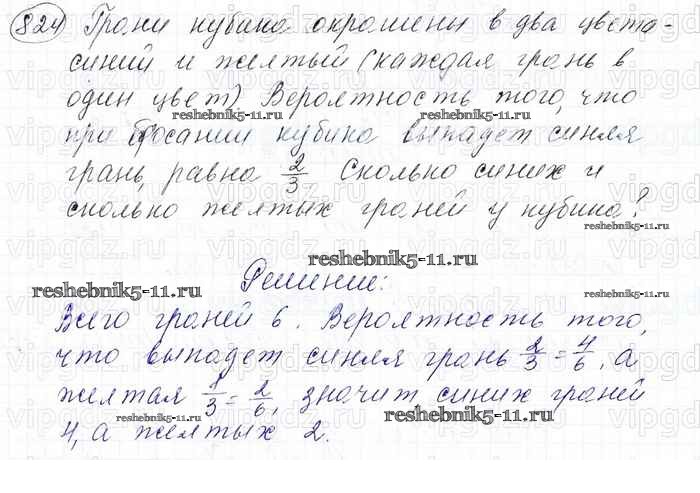 824 Грани кубика окрашены в два цвета-
синий и желтый (каждая грань в
один цвет) Вероятность того, что
при бросании кубика выпадет синяя
грань, равна 2/3 Сколько синих и
сколько желтых граней у кубика?
Решение:
Всего граней 6. Вероятность того,
что выпадет синяя грань 2/3 = 4/6, а
желтая 1/3 = 2/6, значит синих граней
4, а желтых 2.
reshebnik5-11.ru
reshebnik5-11.ru
reshebnik5-11.ru
reshebnik5-11.ru
reshebnik5-11.ru
reshebnik5-11.ru
reshebnik5-11.ru
vipgdz.ru